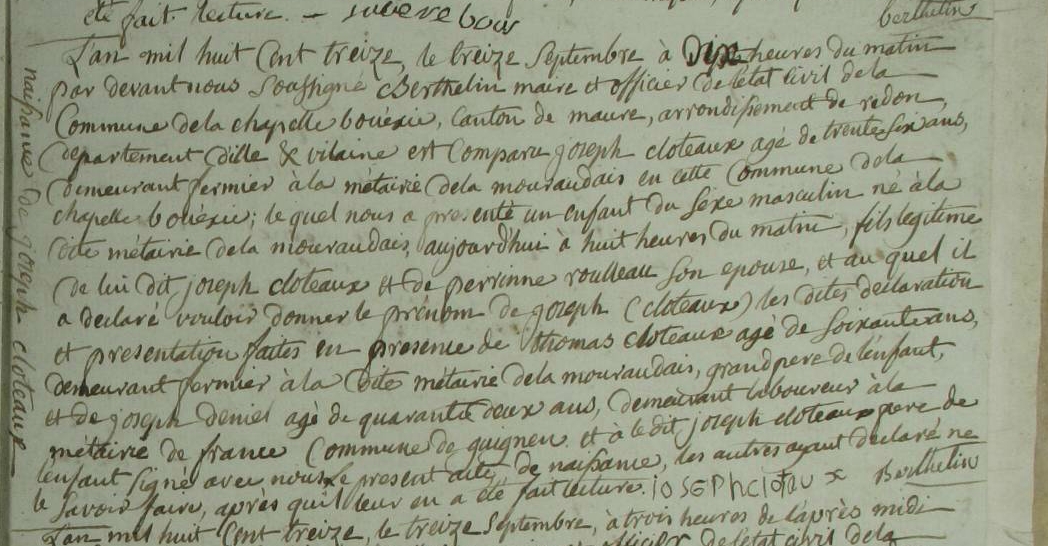 été fait lecture. -
berthelin
L'an mil huit Cent treize, le treize Septembre à Dix heures du matin
par devant nous Soussigné Berthelin maire et officier de l'état Civil dela
Commune dela chapelle bouëxic, Canton de maure, arrondissement de redon,
département d'ille & vilaine est Comparu joseph cloteaux agé de trente Six ans,
demeurant fermier à la métairie dela mouraudais en cette Commune dela
chapelle bouëxic; le quel nous a présenté un enfant du Sexe masculin né à la
dite métairie dela mouraudais, aujourd'hui à huit heures du matin, fils legitime
de lui dit joseph cloteaux et de perrinne roulleau Son epouse, et au quel il
a declaré vouloir donner le prénom de joseph (cloteaux) les dites declaration
et presentation faites en presence de thomas cloteaux agé de Soixante ans,
demeurant fermier à la dite métairie dela mouraudais, grand pere de l'enfant,
et de joseph deniel agé de quarante deux ans, demeurant laboureur à la
métairie de france Commune de guignen et à le dit joseph cloteaux pere de
l'enfant Signé avec nous le present acte de naissance, les autres ayant declaré ne
le Savoir faire, après qu'il leur en a été fait lecture. iOSEPh clotau x Berthelin
L'an mil huit Cent treize, le treize Septembre, à trois heures de l'après midi
officier de l'état Civil dela
naissance de joseph cloteaux